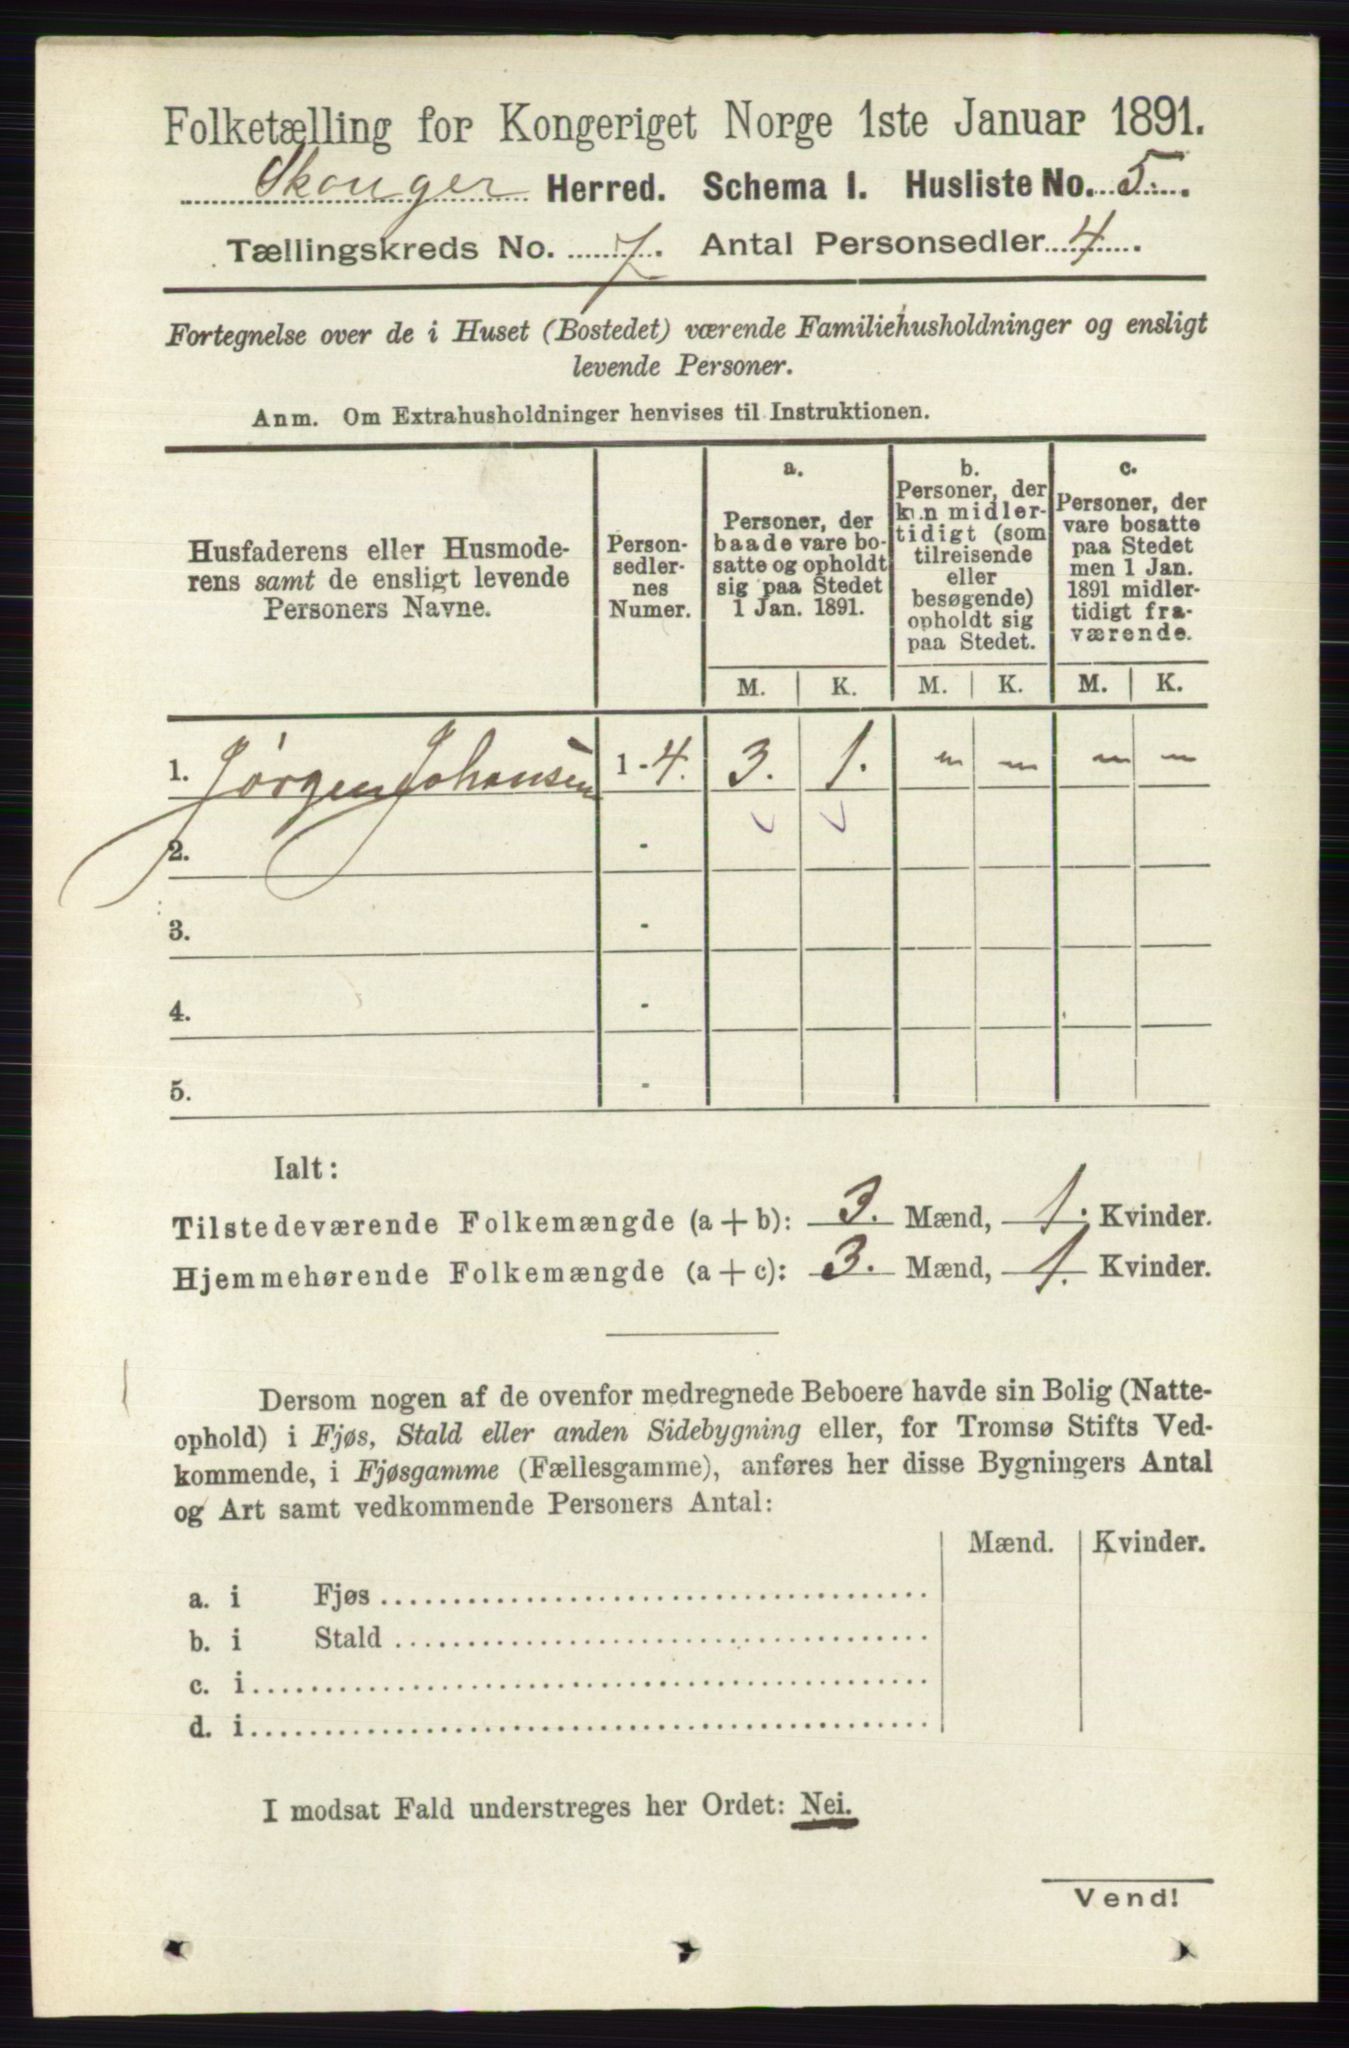 Folketælling for Kongeriget Norge 1ste Januar 1891.
Skouger Herred. Schema I. Husliste No. 5.
Tællingskreds No. 7. Antal Personsedler 4.
Fortegnelse over de i Huset (Bostedet) værende Familiehusholdninger og ensligt
levende Personer.
Anm. Om Extrahusholdninger henvises til Instruktionen.
Husfaderens eller Husmode-
rens samt de ensligt levende
Personers Navne.
Person-
sedler-
nes
Numer.
a.
Personer, der
baade vare bo-
satte og opholdt
sig paa Stedet
1 Jan. 1891.
b.
Personer, der
kun midler-
tidigt (som
tilreisende
eller
besøgende)
opholdt sig
paa Stedet.
c.
Personer, der
vare bosatte
paa Stedet
men 1 Jan.
1891 midler-
tidigt fra-
værende.
M. K. M. K. M. K.
1. Jørgen Johansen 1 - 4. 3. 1. „ „ „ „
2. -
3. -
4. -
5. -
Ialt:
Tilstedeværende Folkemængde (a + b): 3. Mænd, 1. Kvinder.
Hjemmehørende Folkemængde (a + c): 3. Mænd, 1. Kvinder.
Dersom nogen af de ovenfor medregnede Beboere havde sin Bolig (Natte-
ophold) i Fjøs, Stald eller anden Sidebygning eller, for Tromsø Stifts Ved-
kommende, i Fjøsgamme (Fællesgamme), anføres her disse Bygningers Antal
og Art samt vedkommende Personers Antal:
Mænd. Kvinder.
a. i Fjøs
b. i Stald
c. i
d. i
I modsat Fald understreges her Ordet: Nei.
Vend!